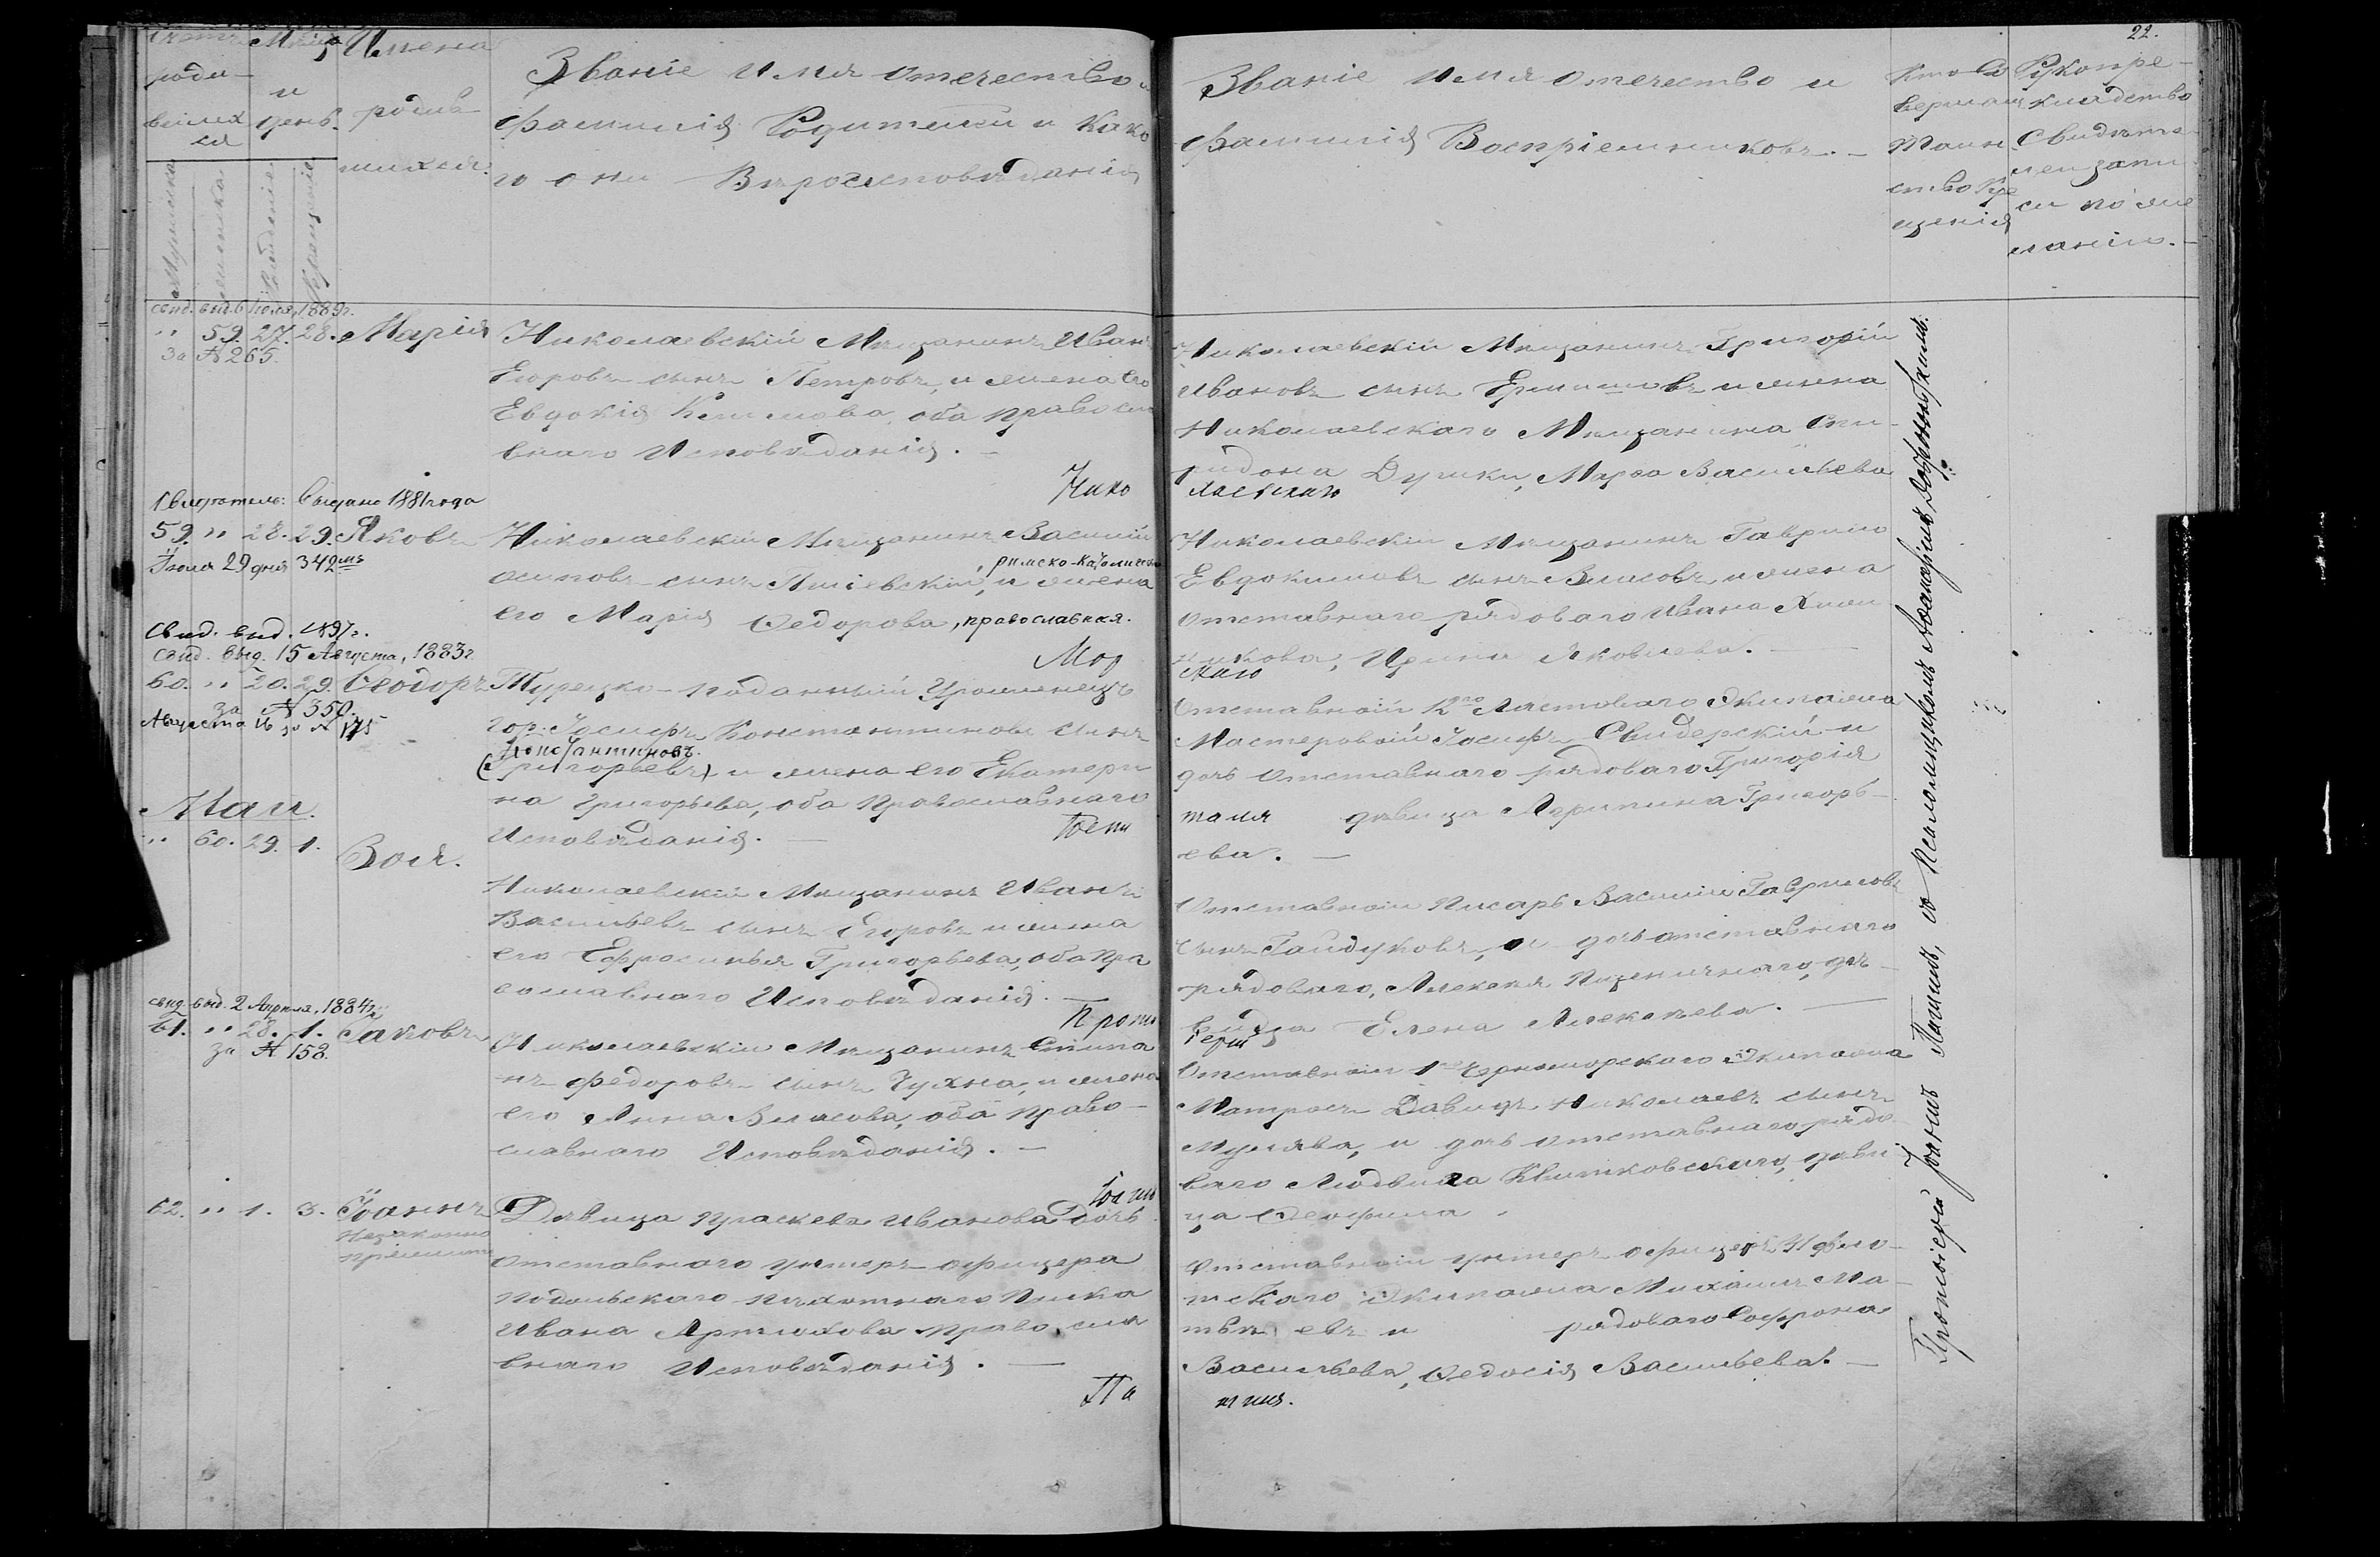 22.
Счетъ
роди-
вшихся
Мѣсяцъ
и
день.
Имена
родив-
шихся.
Званіе Имя Отечество и
фамилія Родителей и како
го они Вѣроисповѣданія
Званіе Имя Отечество и
фамилія Воспріемниковъ. –
Кто со
вершалъ
Таин
ство Кре
щенія
Рукопре-
кладство
Свидѣте
лей запи
си по же
ланію. –
Мужеска
женска
Рожденіе
Крещеніе
свид. выд. 6 Іюля, 1889 г.
" 59. 27. 28. Марія
За № 265.
Николаевскій Мѣщанинъ Иванъ
Егоровъ сынъ Петровъ, и жена его
Евдокія Климова, оба православ
внаго Исповѣданія. –
Николаевскій Мѣщанинъ Григорій
Ивановъ сынъ Ермиловъ и жена
Николаевскаго Мѣщанина Спи-
ридона Душки, Марѳа Васильева
Нико
лаевскаго
Свидѣтель: Выдано 1881 года
59. " 28. 29. Яковъ
Іюля 29 дня 342мъ
Николаевскій Мѣщанинъ Василій
, римско-католическ
Осиповъ сынъ Пшіевскій, и жена
его Марія Ѳедорова, православная.
Николаевскій Мѣщанинъ Гаврило
Евдокимовъ сынъ Власовъ, и жена
отставнаго рядоваго Ивана
Ирина Яковлева. –
Мор
скаго
Свид. выд. 1897 г.
свид. выд. 15 Августа, 1883 г.
60. " 20. 29. Ѳеодоръ
за № 350.
Августа 16 за № 175
Турецко-подданный Уроженецъ
гор: Іосифъ Константиновъ сынъ
Константиновъ.
(Григорьевъ) и жена его Екатери
на Григорьева, оба Православнаго
Исповѣданія. –
Отставной 12го Ластоваго Экипажа
Мастеровой Іосифъ Свидерскій и
дочь отставнаго рядоваго Григорія
таля дѣвица Агрипина Григорь-
ева. –
Госпи
Маи.
" 60. 29. 1. Зоя.
Николаевскій Мѣщанинъ Иванъ
Васильевъ сынъ Егоровъ и жена
его Ефросинья Григорьева, оба Пра
вославнаго Исповѣданія. –
Отставной Писарь Василій Гавриловъ
сынъ Гайдуковъ, и дочь отставнаго
рядоваго, Алексея Пшеничнаго, дѣ-
вица Елена Алексѣева. –
свид. выд. 2 Апрѣля, 1884 г.
61. " 28. 1. Іаковъ
за № 158.
Николаевскій Мѣщанинъ Степа
нъ Федоровъ сынъ Чухна, и жена
его Анна Власова, оба Право-
славнаго Исповѣданія. –
Отставной 1го Черноморскаго Экипажа
Матросъ Давидъ Николаевъ сынъ
Мулява, и дочь отставнаго рядо
ваго Людвига Квитковскаго, дѣви
ца Ѳеофила.
62. " 1. 3. Іоаннъ
Незаконно
Дѣвица Праскева Иванова дочь
Отставнаго унтеръ офицера
Подольскаго пѣхотнаго Полка
Ивана Артюхова православ
внаго Исповѣданія. –
Отставной унтеръ офицеръ
Экипажа Михаилъ Ма-
твѣевъ и рядоваго Софрона
Васильева, Ѳедосія Васильева. –
Протоіерей Іоаннъ съ Псаломщикомъ